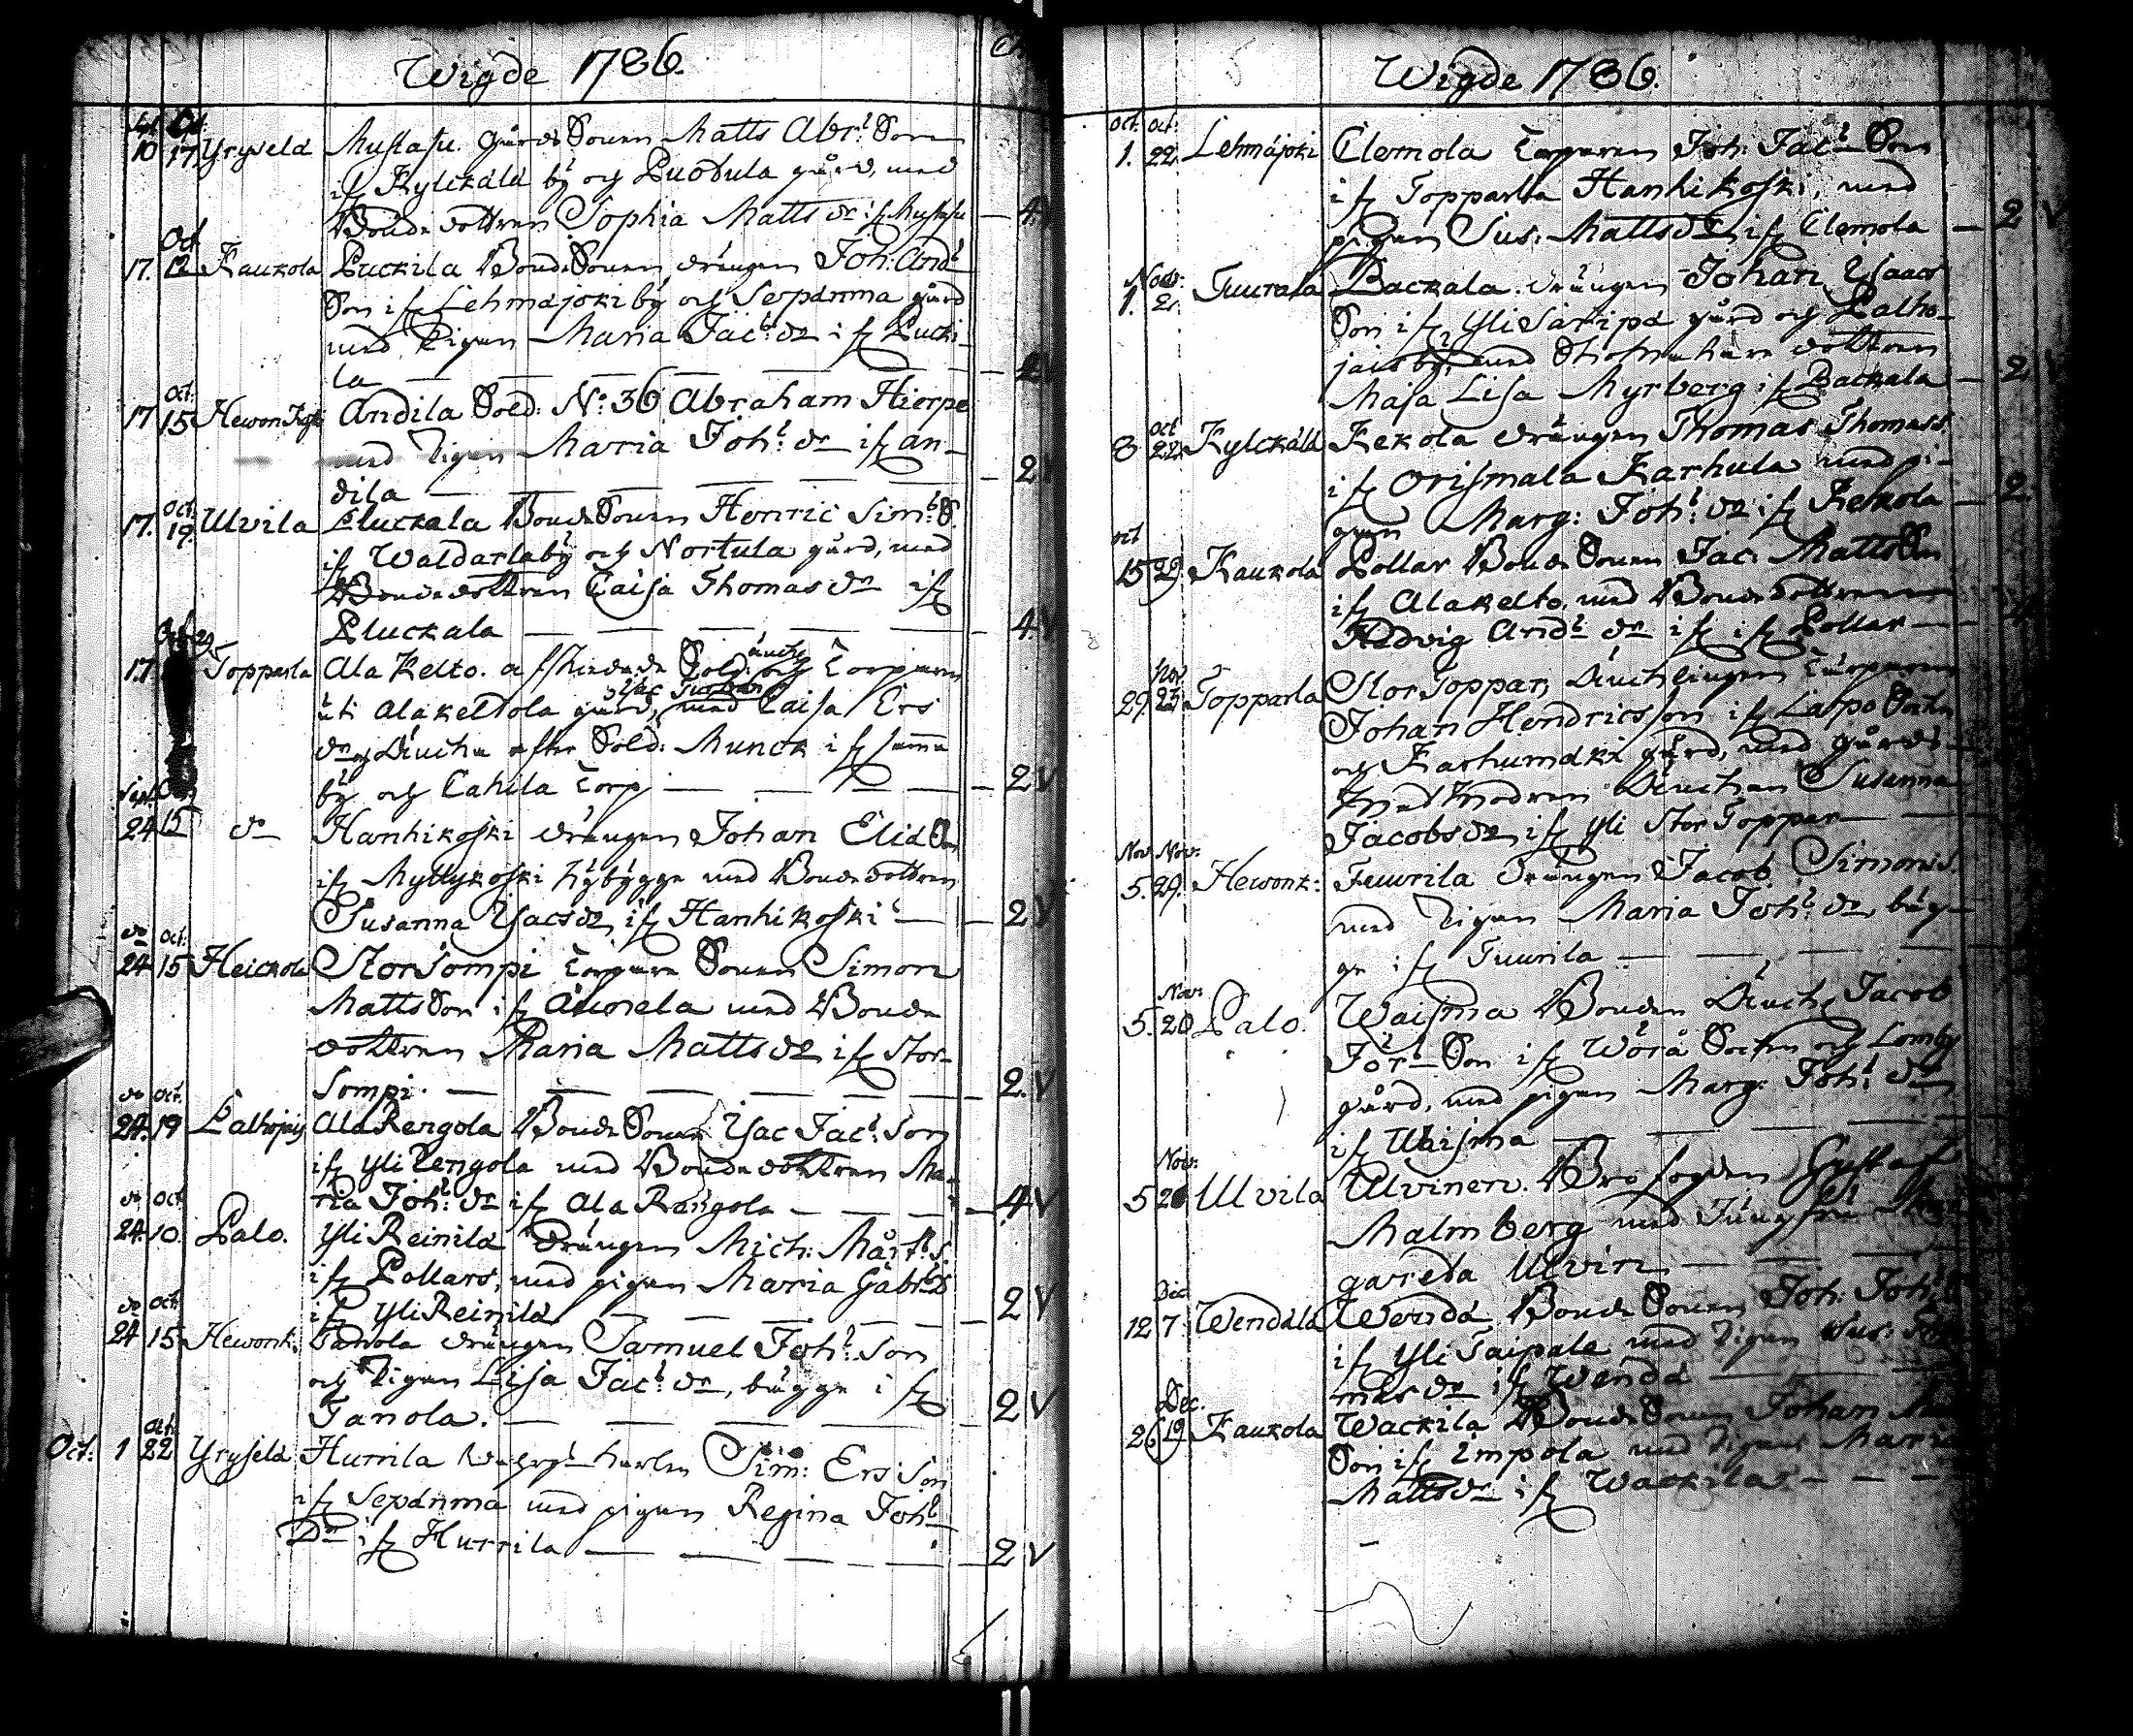 Wigde 1786.
Sept Oct.
10 17 Yryselä Mustasu. gårds Sonen Matts Abr:s Son
ifr Kylckälä bÿ och Puotula gård, med
Bonde dottren Sophia Matts dr ifr Mustasu — 4. V
Oct
17. 12 Kaukola Puckila Bonde Sonen, drängen Joh: And:s
Son ifr Lehmäjoki bÿ och Sepänma gård
med Pigan Maria Jac:s dr ifr Pucki-
la — — — — — — 2 V
Oct.
17 15 Hewonkoski Andila Sold: No: 36 Abraham Hierpe
med Pigan Maria Joh:s dr ifr An-
dila — — — — — 2 V
Oct.
17. 19. Ulvila Pluckala Bonde Sonen Henric Sim:s S.
ifr Waldarla bÿ och Nortula gård, med
Bonde dottren Caisa Thomas dr ifr
Pluckala — — — — — 4. V
Oct 29
17. Topparla Ala Kelto. afskedade Sold: och Torparen
uti Alakeltola gård, med Caisa Ers
dr och Äncka efter Sold: Munck ifr samma
bÿ och Cahila Torp — — — — 2 V
Sept. Oct
24 15 do Hanhikoski drängen Johan Eliæ Son
ifr Myllykoski Nÿbÿgge med Bonde dottren
Susanna Ysacs dr ifr Hanhikoski — — 2 V
do Oct:
24 15 Heickola StorSompi Torpare Sonen Simon
Matts Son ifr Aunela med Bonde
dottren Maria Matts dr ifr Stor-
Sompi. — — — — — 2. V
do Oct.
24. 19 Palhojais Ala Rengola Bonde Sonen Ysac Jac:s Son
ifr Yli Rengola med Bonde dottren Ma-
ria Joh:s dr ifr Ala Rengola — — — 4 V
do Oct
24. 10. Palo. Yli Reinilä Drängen Mich: Mårt:s S.
ifr Pollars, med pigan Maria Gabr:s dr
ifr Yli Reinilä — — — — 2 V
do Oct
24 15 Hewonk. Tanola drängen Samuel Joh:s Son
och Pigan Lisa Jac:s dr, bägge ifr
Tanola. — — — — — 2 V
Oct:
Oct: 1 22 Yryselä Hurrila Sim: Ers Son
ifr Sepänma med pigan Regina Joh:s
Dr ifr Hurrila — — — — — 2 V
Wigde 1786.
Oct: Oct:
1. 22. Lehmäjoki Clemola Torparen Joh: Jac:s Son
ifr Topparla Hanhikoski, med
pigan Sus: Matts dr ifr Clemola — 2 V
Nov:
1. 2. Tuurala Backala. drängen Johan Ysaacs
Son ifr Yli Saripä gård och Palho-
jais bÿ, med dottren
Maja Lisa Myrberg ifr Backala — 2 V
Oct
8 22. Kylckälä Kekola drängen Thomas Thomass.
ifr Orismala Karhula med pi-
gan Marg: Joh:s dr ifr Kekola — 2.
Oct
15 29. Kaukola Pollar Bonde Sonen Jac: Matts Son
ifr Alakelto. med Bonde dottren
Hedvig And:s dr ifr ifr Pollar —
Nov.
29. 23 Topparla StorToppar, Äncklingen Torparen
Johan Hendricsson ifr Lapo Sockn
och Karhumäki gård, med gårds-
Änckan Susanna
Jacobs dr, ifr Yli Stor Toppar —
Nov. Nov:
5. 29. Hewonk: Tuurila Drängen Jacob Simons S.
med Pigan Maria Joh:s dr, bäg-
ge ifr Tuurila — — —
Nov:
5. 20 Palo. Waisma Bonden Änckl. Jacob
Jör:s Son ifr Wörå Socken och Lomby
gård, med pigan Marg: Joh:s dr
ifr Waisma — — — —
Nov:
5 26 Ulvila Ulvinen. Brofogden Gustaf
Malmberg med Jungfru Mar-
gareta Ulvin — — —
Dec
12 7 Wendälä Wendä, Bonde Sonen Joh: Joh:s
ifr Yli Taipale med Pigan Sus: Tho-
mas dr ifr Wendä —
Dec.
26 19 Kaukola Wackila Bonde Sonen Johan
Son ifr Impola med Pigan Maria
Matts dr ifr Wackila — — —